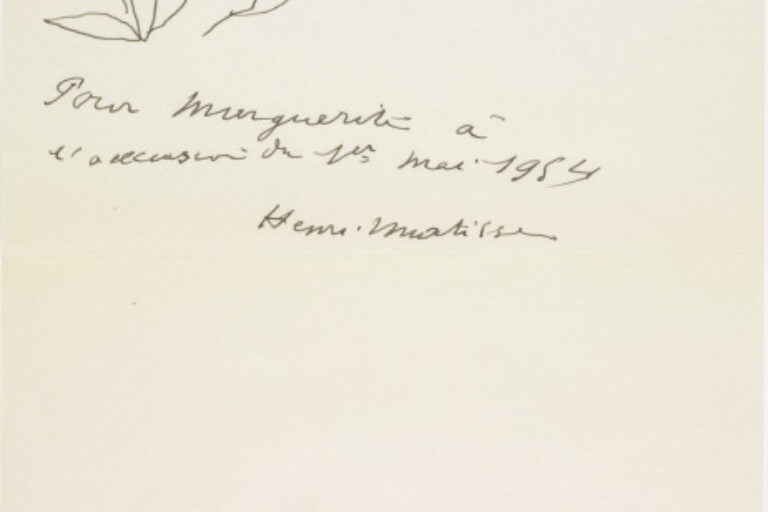 Pour Marguerite à
l'occasion du 1er mai 1954
Henri. Matisse